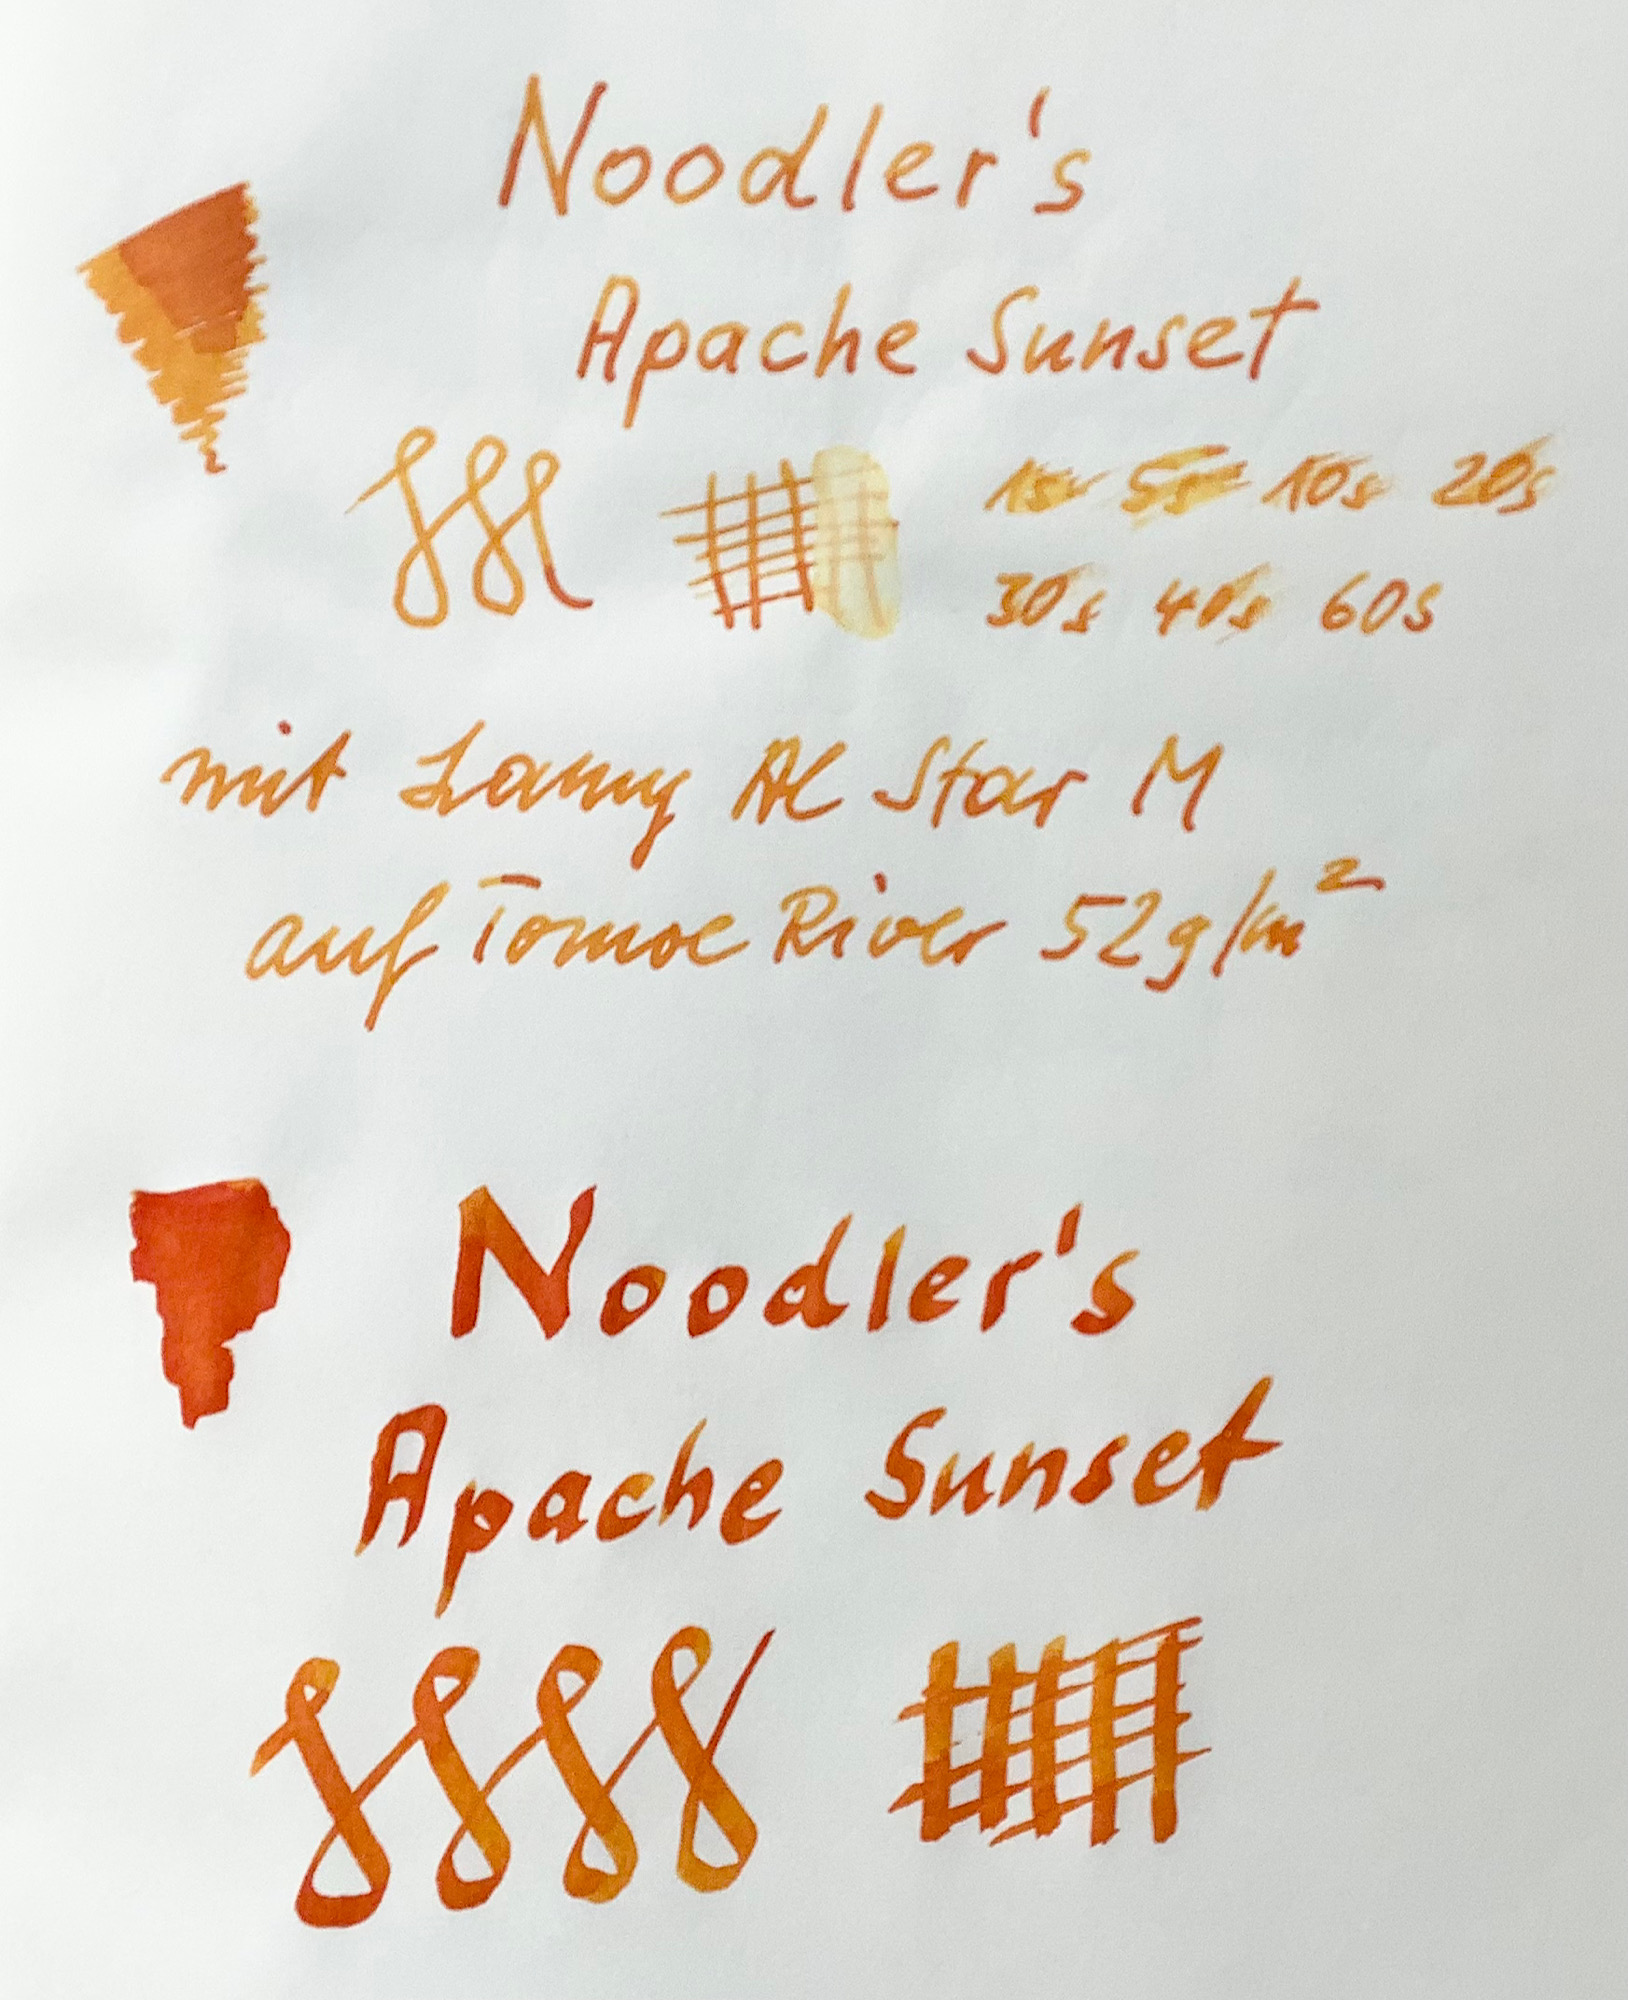 Noodler's
Apache Sunset
1s 5s 10s 20s
30s 40s 60s
mit Lamy AL Star M
auf Tomoe River 52g/m²
Noodler's
Apache Sunset